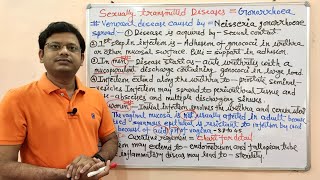 Sexually transmitted Diseases = Gonorrhoea
# Venereal disease caused by = Neisseria gonorrhoeae
spread - ① Disease is acquired by sexual contact.
1st step in infection is - Adhesion of gonococci in urethra
or other mucosal surface. Pili = support in adhesion
In men Disease start as - acute urethritis with a
mucopurulent discharge containing gonococci in large
Infection extend along the urethra to prostate, seminal
vesicles Infection may spread to periurethral tissue and
abscesses and multiple discharging sinuses.
women Initial infection involves the urethra and cervix
The vaginal mucosa is not usually affected in adults because
squamous epithelium is resistant to infection by cocci
because of acidic pH of vagina
may extend to endometrium and fallopian tube
inflammatory disease may lead to - sterility.